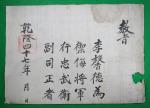 敎旨
李馨德爲
禦侮將軍
行忠武衛
副司正者
乾隆四十七年 月 日